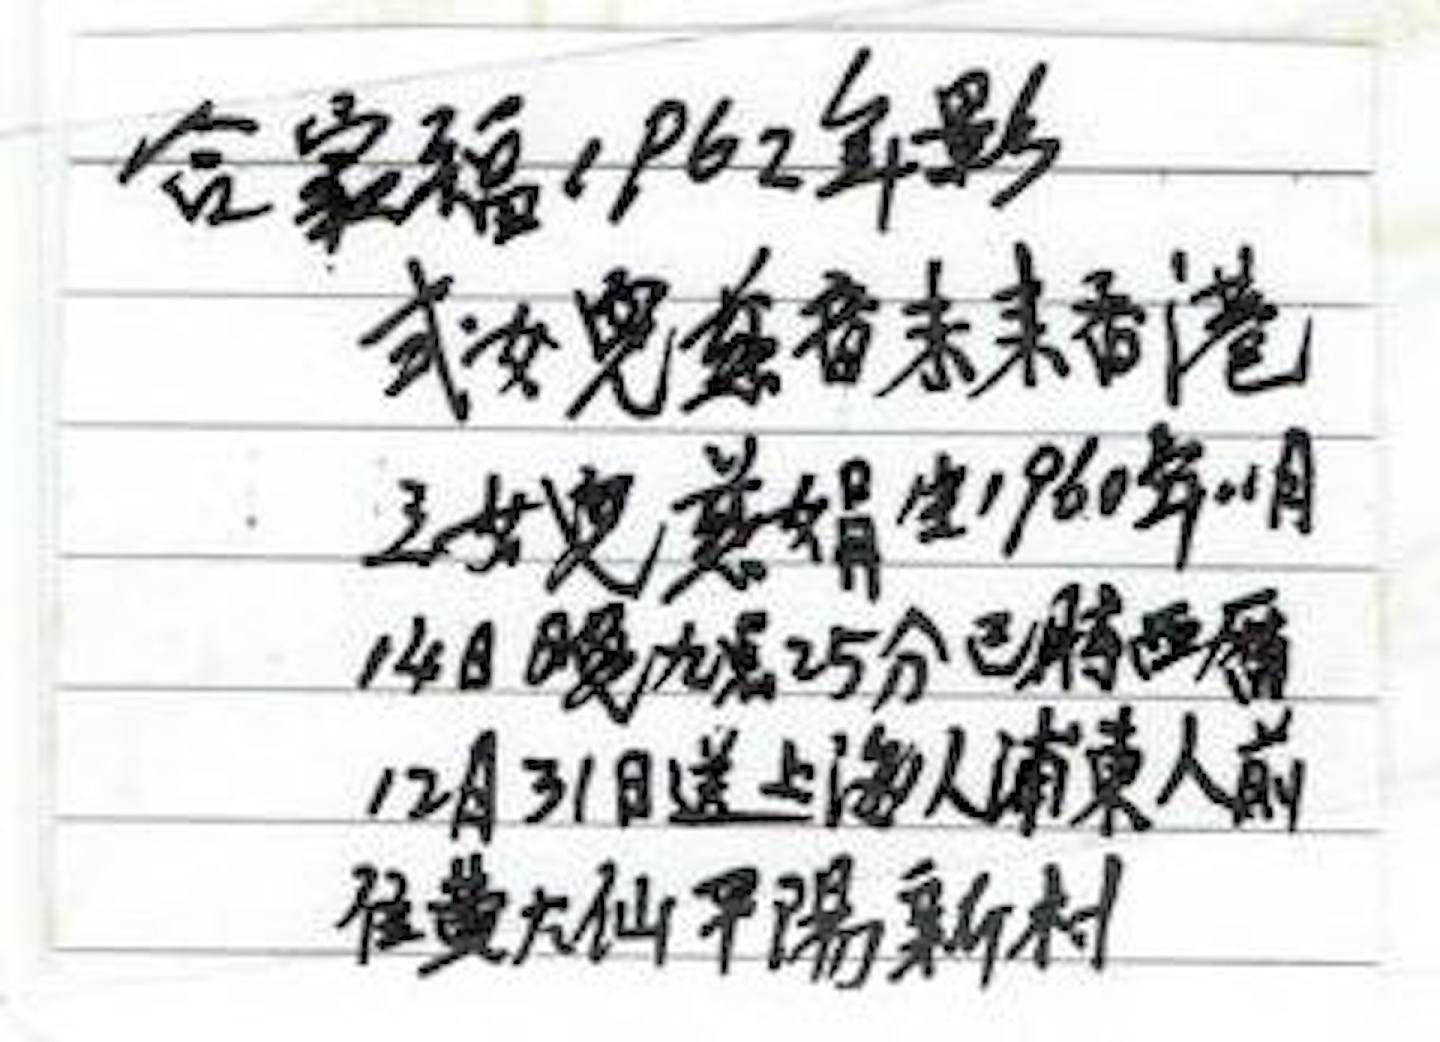 合家福,1962年影
式女兒慈音未來香港
三女兒慈娟生1960年11月
14日晚九点25分已時西曆
12月31日送上海人浦東人前
住黃大仙平陽新村